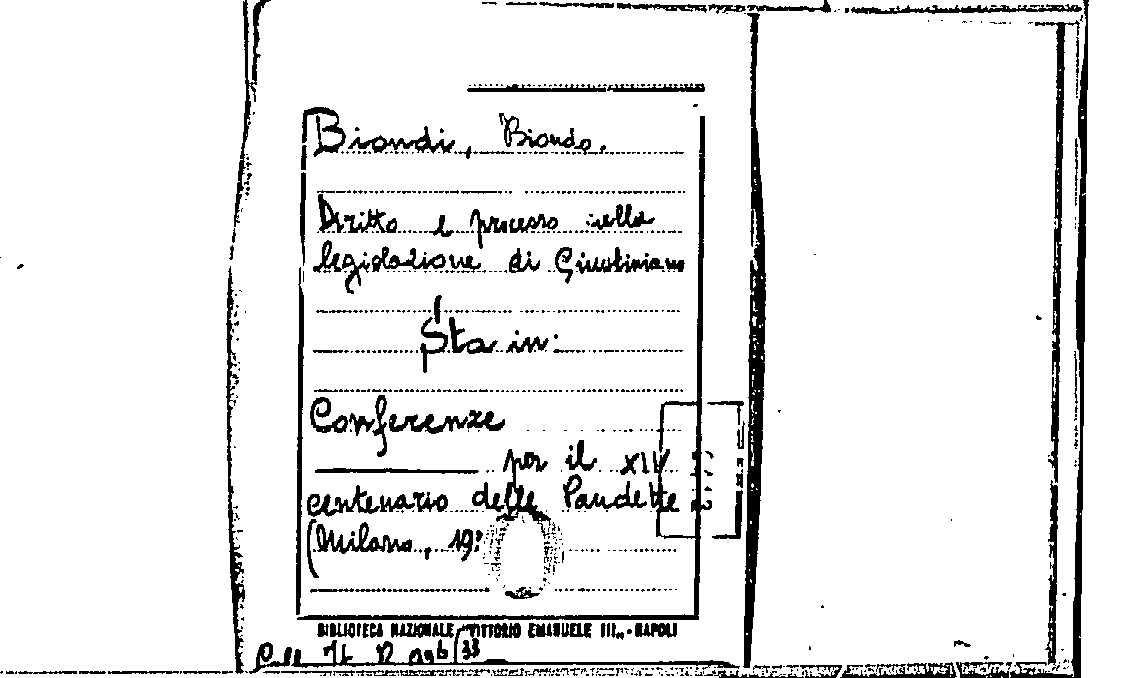 Biondi, Biondo.
Diritto e processo nella
legislazione di Giustiniano
Sta in:
Conferenze
per il XIV
centenario delle Pandette
(Milano, 19
BIBLIOTECA NAZIONALE "VITTORIO EMANUELE III„ - NAPOLI